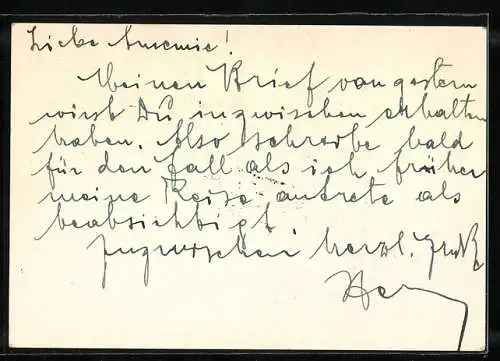 Liebe Annemie!
Meinen Brief von gestern
wirst Du inzwischen erhalten
haben. Also schreibe bald
für den Fall als ich früher
meine Reise antrete als
beabsichtigt.
Inzwischen herzl. Gruß